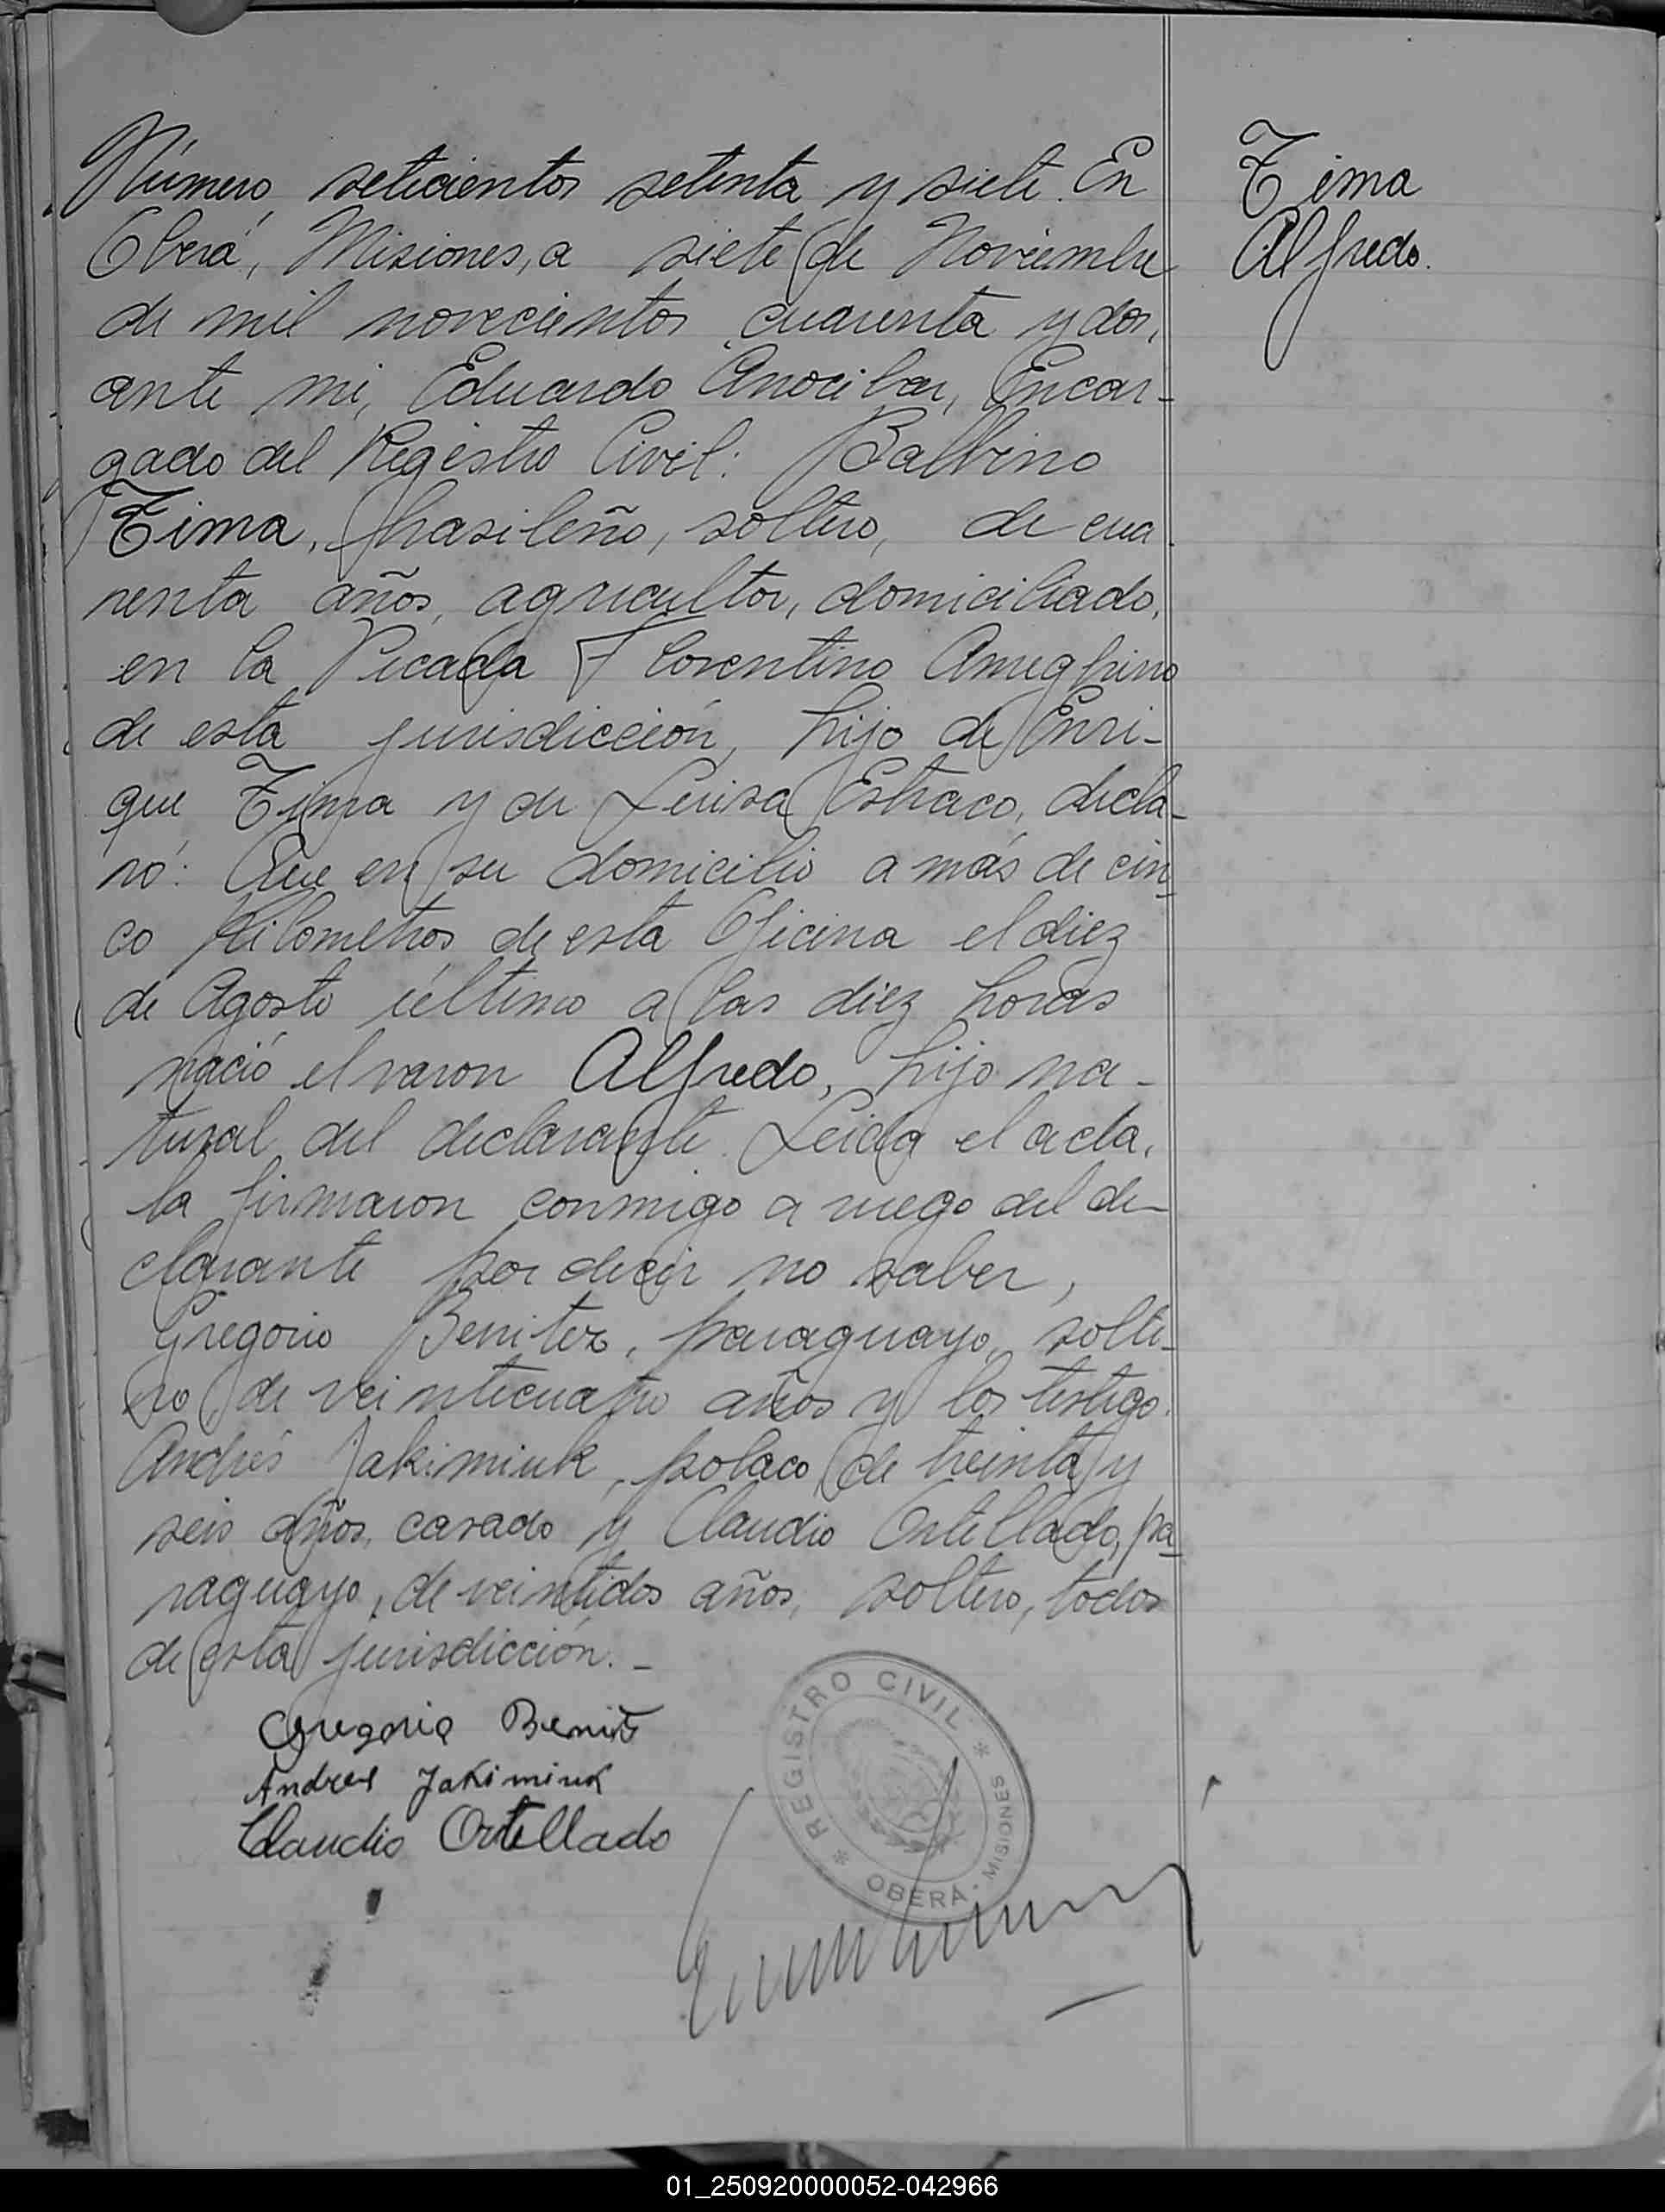 Número setecientos setenta y siete. En
Oberá, Misiones, a siete de Noviembre
de mil novecientos cuarenta y dos,
ante mi, Eduardo Anocibar, Encar-
gado del Registro Civil: Balbino
Tima, brasileño, soltero, de cua
renta años, agricultor, domiciliado,
en la Picada Florentino Ameghino
de esta jurisdicción, hijo de Enri-
que Tima y de Luisa Estraco, decla-
ró: Que en su domicilio a más de cin-
co Kilometros de esta Oficina el diez
de Agosto último a las diez horas
nació el varon Alfredo, hijo na-
tural del declarante. Leida el acta,
la firmaron conmigo a ruego del de-
clarante por decir no saber,
Gregorio Benitez, paraguayo, solte-
ro, de veinticuatro años y los testigo.
Andrés Jakimiuk, polaco, de treinta y
seis años, casado y Claudio Ortellado, pa-
raguayo, de veintidos años, soltero, todos
de esta jurisdicción. -
Gregorio Benite
Andres Jakimiuk
Claudio Ortellado
Tima
Alfredo.
* REGISTRO CIVIL *
OBERÁ - MISIONES
01_250920000052-042966